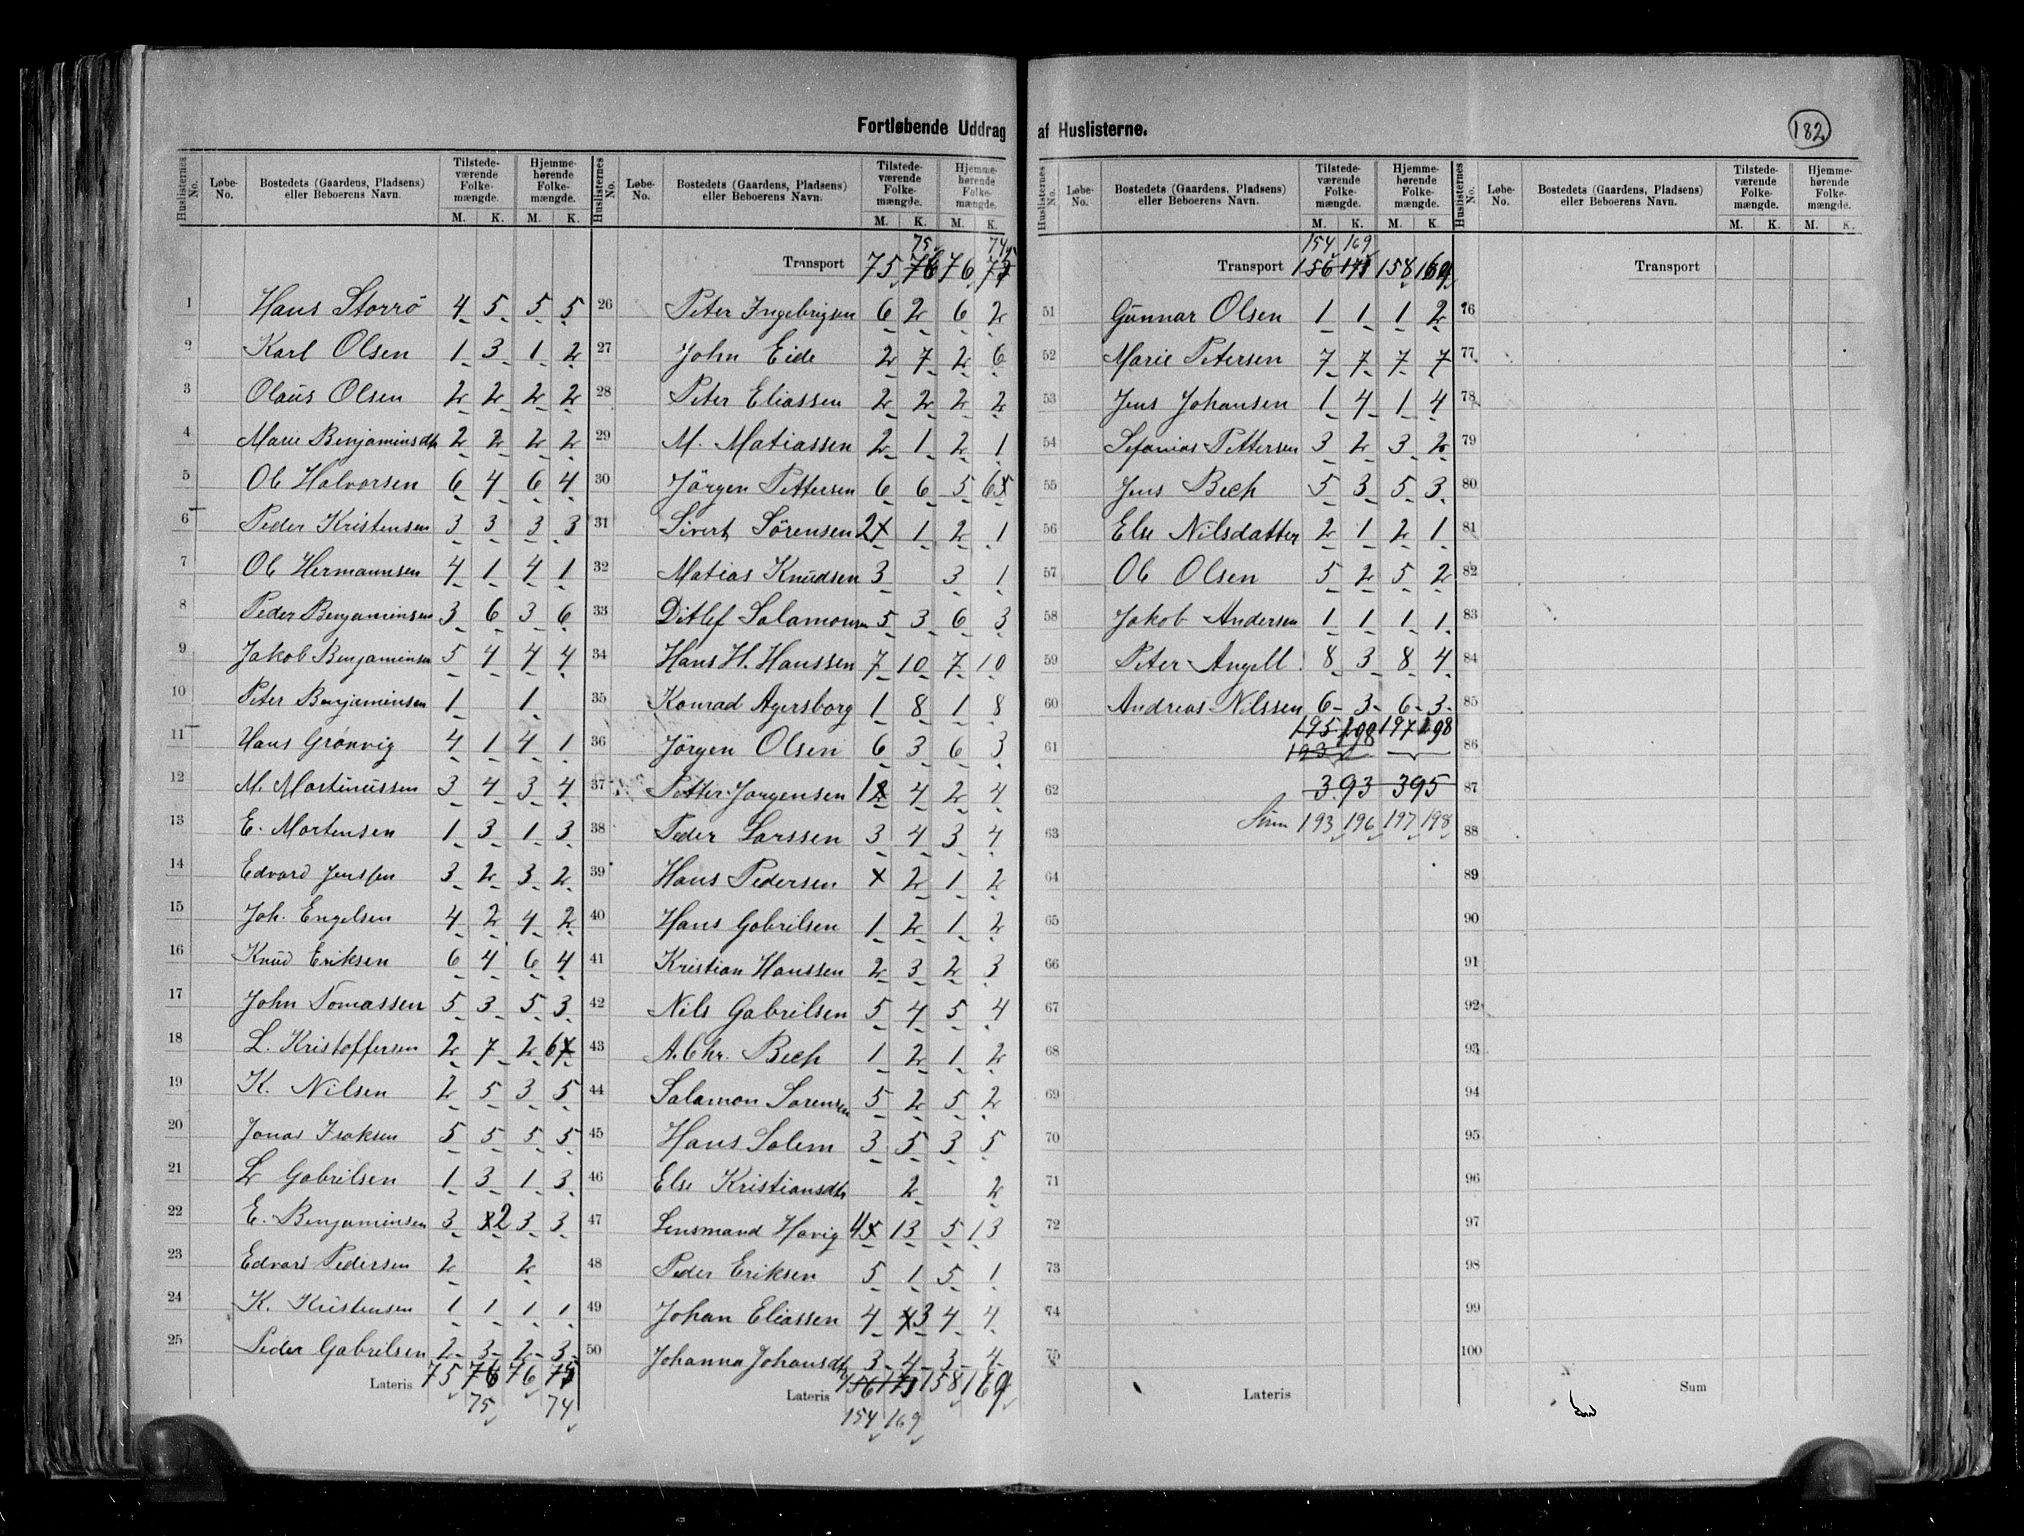 Fortløbende Uddrag af Huslisterne.
182
Huslisternes No. Løbe-No. Bostedets (Gaardens, Pladsens) eller Beboerens Navn. Tilstedeværende Folkemængde. M. K. Hjemmehørende Folkemængde. M. K.
1 Hans Storrö 4 5 5 5
2 Karl Olsen 1 3 1 2
3 Olaus Olsen 2 2 2 2
4 Marie Benjaminsdtr 2 2 2 2
5 Ol Halvorsen 6 4 6 4
6 Peder Kristensen 3 3 3 3
7 Ol Hermannsen 4 1 4 1
8 Peder Benjaminsen 3 6 3 6
9 Jakob Benjaminsen 5 4 4 4
10 Peter Benjaminsen 1 1
11 Hans Grönvig 4 1 4 1
12 M. Martinussen 3 4 3 4
13 E. Mortensen 1 3 1 3
14 Edvard Jenssen 3 2 3 2
15 Joh. Engelsen 4 2 4 2
16 Knud Eriksen 6 4 6 4
17 John Tomassen 5 3 5 3
18 L. Kristoffersen 2 7 2 6
19 K. Nilsen 2 5 3 5
20 Jonas Isaksen 5 5 5 5
21 L Gabrilsen 1 3 1 3
22 E. Benjaminsen 3 2 3 3
23 Edvard Pedersen 2 2
24 K. Kristensen 1 1 1 1
25 Peder Gabrilsen 2 3 2 3
Lateris 75 76 76 75
75 74
Huslisternes No. Løbe-No. Bostedets (Gaardens, Pladsens) eller Beboerens Navn. Tilstedeværende Folkemængde. M. K. Hjemmehørende Folkemængde. M. K.
75 74
Transport 75 76 76 75
26 Peter Ingebrigsen 6 2 6 2
27 John Eide 2 7 2 6
28 Peter Eliassen 2 2 2 2
29 M. Matiassen 2 1 2 1
30 Jörgen Pettersen 6 6 5 6
31 Sivert Sörensen 2 1 2 1
32 Matias Knudsen 3 3 1
33 Ditlef Salamonsen 5 3 6 3
34 Hans H. Hanssen 7 10 7 10
35 Konrad Agersborg 1 8 1 8
36 Jörgen Olsen 6 3 6 3
37 Petter Jorgensen 1 4 2 4
38 Peder Larssen 3 4 3 4
39 Hans Pedersen x 2 1 2
40 Hans Gabrilsen 1 2 1 2
41 Kristian Hanssen 2 3 2 3
42 Nils Gabrilsen 5 4 5 4
43 A. Chr. Bech 1 2 1 2
44 Salamon Sorensen 5 2 5 2
45 Hans Solem 3 5 3 5
46 Else Kristiansdtr 2 2
47 Lensmand Havig 4 13 5 13
48 Peder Eriksen 5 1 5 1
49 Johan Eliassen 4 3 4 4
50 Johanna Johansdtr 3 4 3 4
Lateris 156 171 158 169
154 169
Huslisternes No. Løbe-No. Bostedets (Gaardens, Pladsens) eller Beboerens Navn. Tilstedeværende Folkemængde. M. K. Hjemmehørende Folkemængde. M. K.
154 169
Transport 156 171 158 169
51 Gunnar Olsen 1 1 1 2
52 Marie Petersen 7 7 7 7
53 Jens Johansen 1 4 1 4
54 Sefanias Pettersen 3 2 3 2
55 Jens Bech 5 3 5 3
56 Else Nilsdatter 2 1 2 1
57 Ol Olsen 5 2 5 2
58 Jakob Andersen 1 1 1 1
59 Peter Angell 8 3 8 4
60 Andreas Nilssen 6 3 6 3
195 198 197 198
61 193
62 393 395
63 Sum 193 196 197 198
64
65
66
67
68
69
70
71
72
73
74
75
Lateris
Huslisternes No. Løbe-No. Bostedets (Gaardens, Pladsens) eller Beboerens Navn. Tilstedeværende Folkemængde. M. K. Hjemmehørende Folkemængde. M. K.
Transport
76
77
78
79
80
81
82
83
84
85
86
87
88
89
90
91
92
93
94
95
96
97
98
99
100
Sum